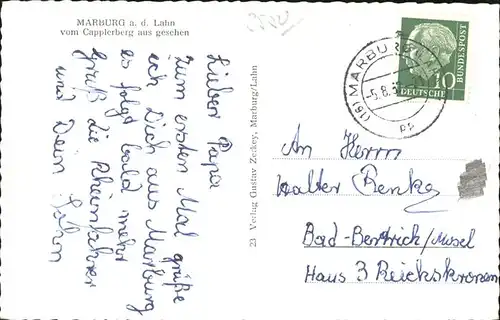 MARBURG a. d. Lahn
vom Capplerberg aus gesehen
Lieber Papa
zum ersten Mal grüße
ich Dich aus Marburg
es folgt bald mehr
Gruß die Rheinfahrer
und Dein Sohn
23 Verlag Gustav Zeckey, Marburg/Lahn
(16) MARBURG
-5.8.5
pp
10
DEUTSCHE
BUNDESPOST
An Herrn
Walter Renke
Bad-Bertrich/Mosel
Haus 3 Reichskronen